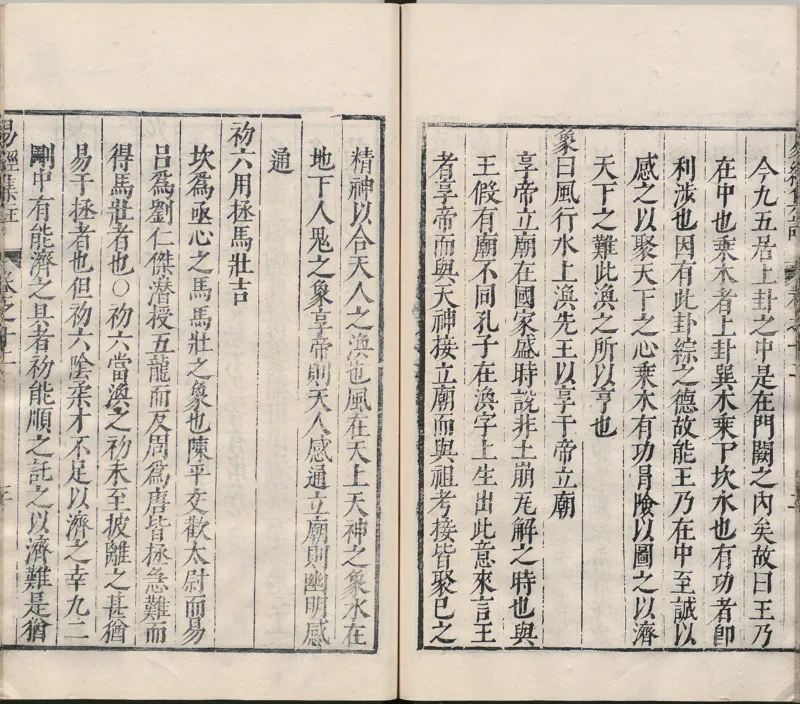 今九五居上卦之中是在門闕之內矣故曰王乃
在中也乗木者上卦巽木乗下坎水也有功者卽
利涉也因有此卦綜之德故能王乃在中至誠以
感之以聚天下之心乗木有功冐險以圖之以濟
天下之難此渙之所以亨也
象曰風行水上渙先王以享于帝立廟
享帝立廟在國家盛時說非土崩瓦解之時也與
王假有廟不同孔子在渙字上生出此意來言王
者享帝而與天神接立廟而與祖考接皆聚已之
精神以合天人之渙也風在天上天神之象水在
地下人鬼之象享帝則天人感通立廟則幽明感
通
初六用拯馬壯吉
坎爲亟心之馬馬壯之象也陳平交歡太尉而易
吕爲劉仁傑潛授五龍而反周爲唐皆拯急難而
得馬壯者也○初六當渙之初未至披離之甚猶
易于拯者也但初六陰柔才不足以濟之幸九二
剛中有能濟之具者初能順之託之以濟難是猶
易經集註